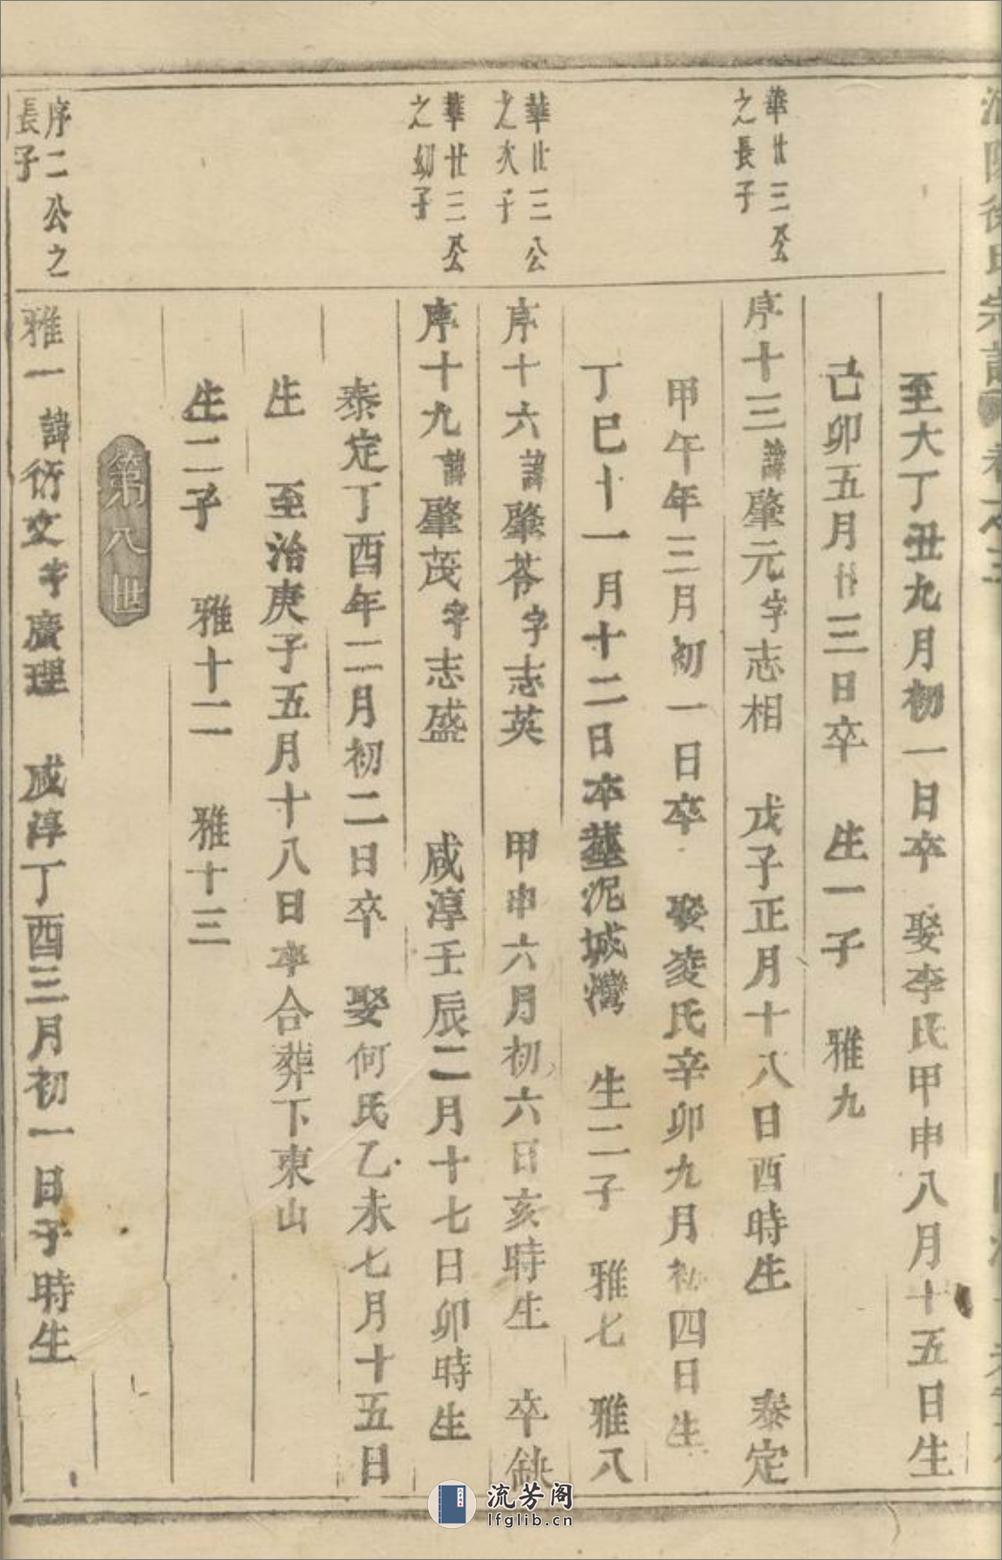 徐氏宗譜
至大丁丑九月初一日卒 娶李氏甲申八月十五日生
己卯五月廿三日卒 生一子 雅九
華廿三公
之長子
序十三諱肇元字志相 戊子正月十八日酉時生 泰定
甲午年三月初一日卒 娶凌氏辛卯九月初四日生
丁巳十一月十二日卒葬泥城灣 生二子 雅七 雅八
華廿三公
之次子
序十六諱肇苓字志英 甲申六月初六日亥時生 卒缺
華廿三公
之幼子
序十九諱肇茂字志盛 咸淳壬辰二月十七日卯時生
泰定丁酉年二月初二日卒 娶何氏乙未七月十五日
生 至治庚子五月十八日卒合葬下東山
生二子 雅十二 雅十三
第八世
序二公之
長子
雅一諱衍文字廣理 咸淳丁酉三月初一日子時生
流芳阁
lfglib.cn